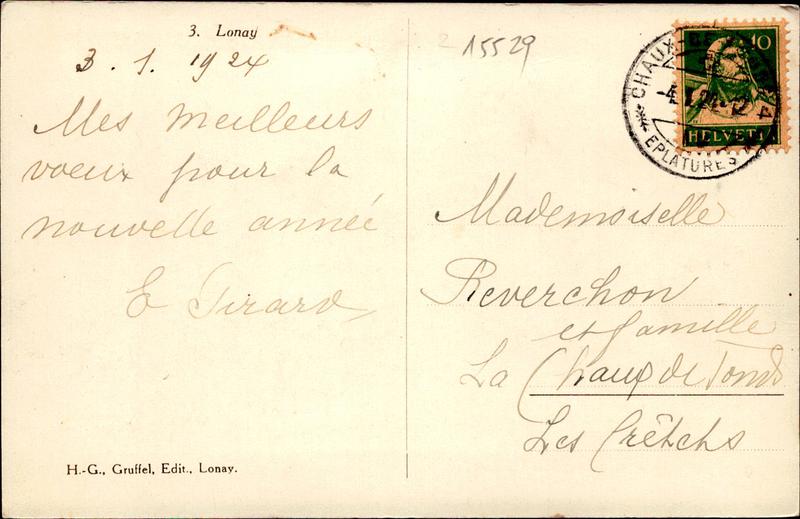 3. Lonay
3. 1. 1924
Mes meilleurs
voeux pour la
nouvelle année
E Girard
H.-G., Gruffel, Edit., Lonay.
15529
10
HELVETIA
CHAUX-DE-FONDS 4
-4.I.24.-12
EPLATURES
Mademoiselle
Reverchon
et famille
La Chaux de Fonds
Les Crêtets